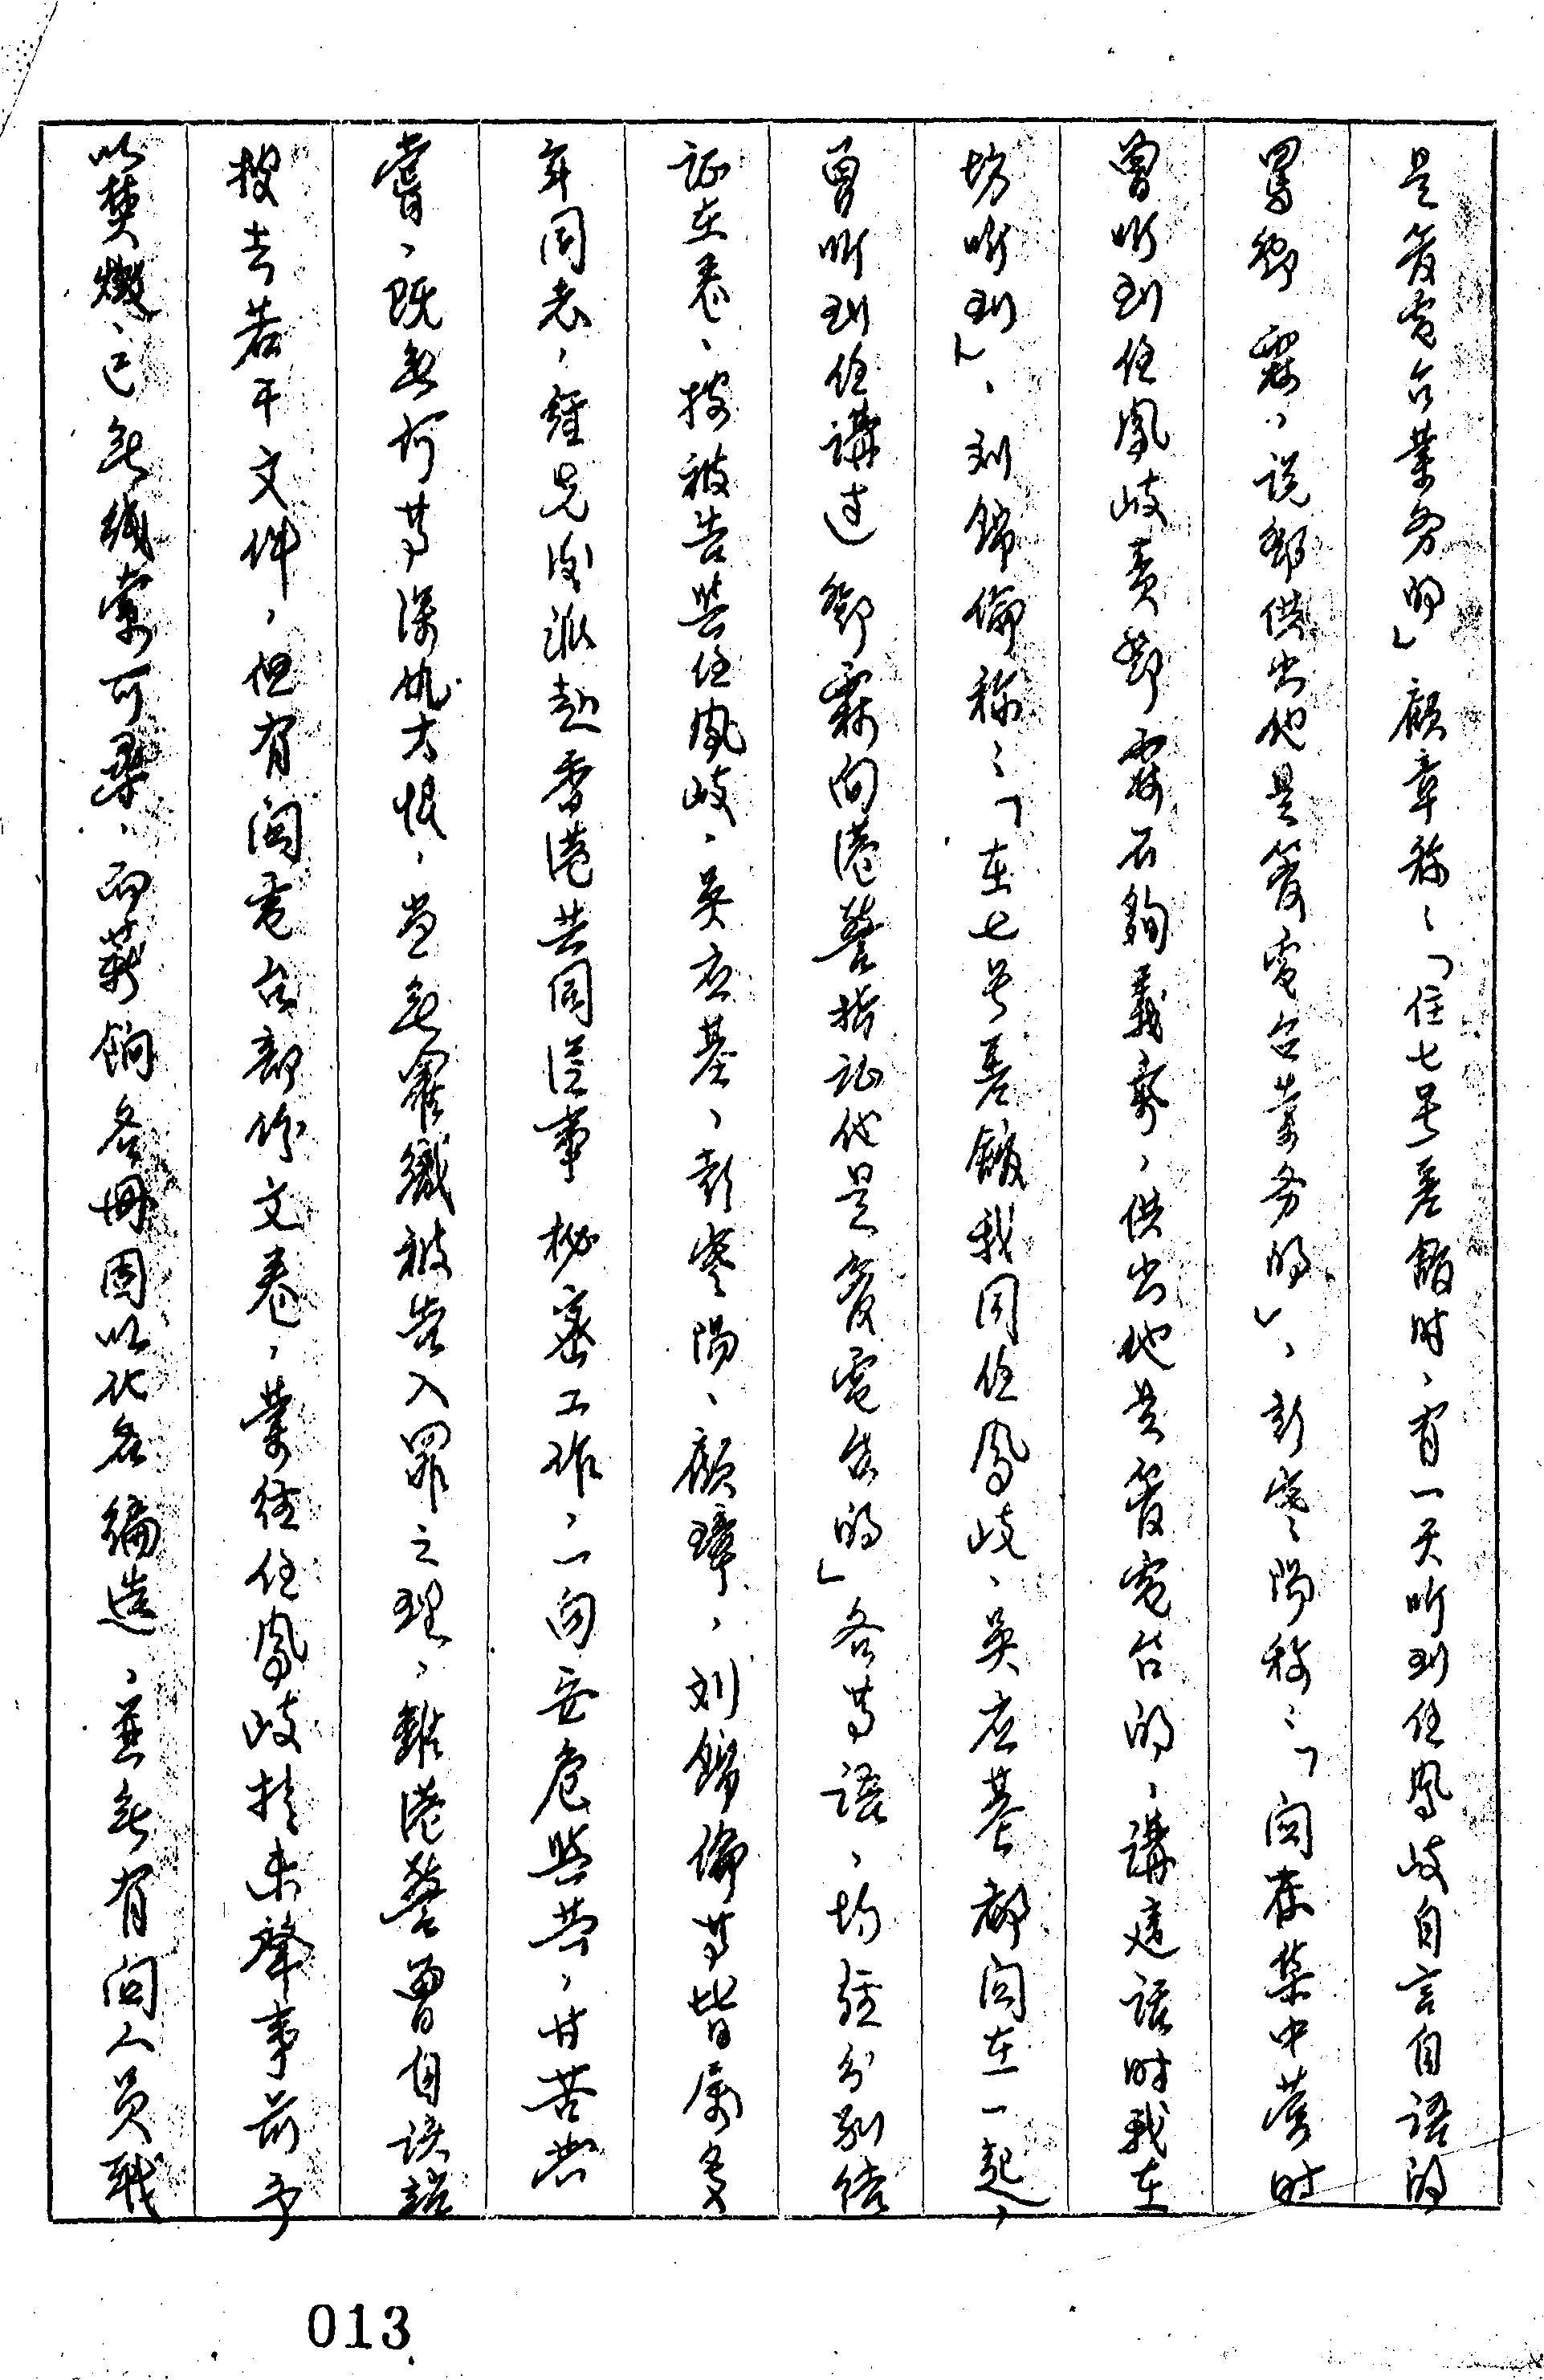 是管电台業务的」顧章称：「住七号差館时，有一天听到任鳳岐自言自语的
罵鄧霖，说鄧供出他是管電台業务的」，彭寒陽称：「関在集中营时
曾听到任鳳岐責鄧霖不夠義氣，供出他是管電台的，講這話时我在
場听到」，刘錦倫称：「在七号差館我同任鳳岐、吳应基都関在一起，
曾听到任講过鄧霖向港警指证他是管電台的」各等語，均経分別結
证在卷，按被告與任鳳岐、吳应基、彭寒陽、顧章，刘錦倫等皆属多
年同志，経先後派赴香港共同從事秘密工作，一向安危與共，甘苦共
嘗，既無何等深仇大恨，岂無羅織被告入罪之理，雖港警曾自该諾
搜去若干文件，但有関電台部份文卷，業経任鳳岐於未肇事前予
以焚燬，已無线索可尋，而薪餉各冊因以化名编造，並無有関人员職
013